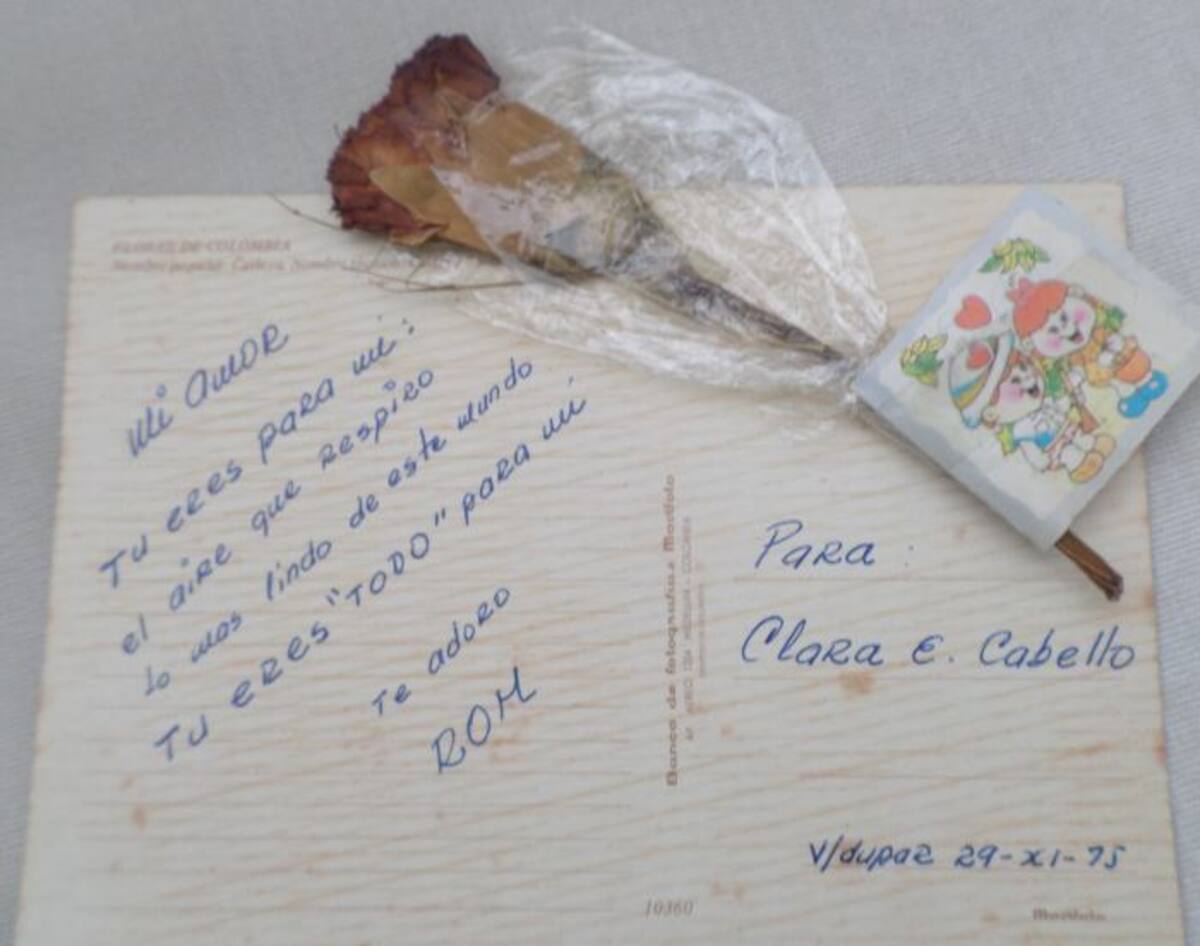 FLORES DE COLOMBIA
Nombre popular: Catleya. Nombre
Mi AMOR
TU ERES PARA mi:
el aire que respiro
lo mas lindo de este mundo
TU ERES "TODO" PARA mi
Te adoro
ROM
Banco de fotografías Movifoto
PARA :
Clara E. Cabello
V/dupar 29-XI-75
10360
Movifoto